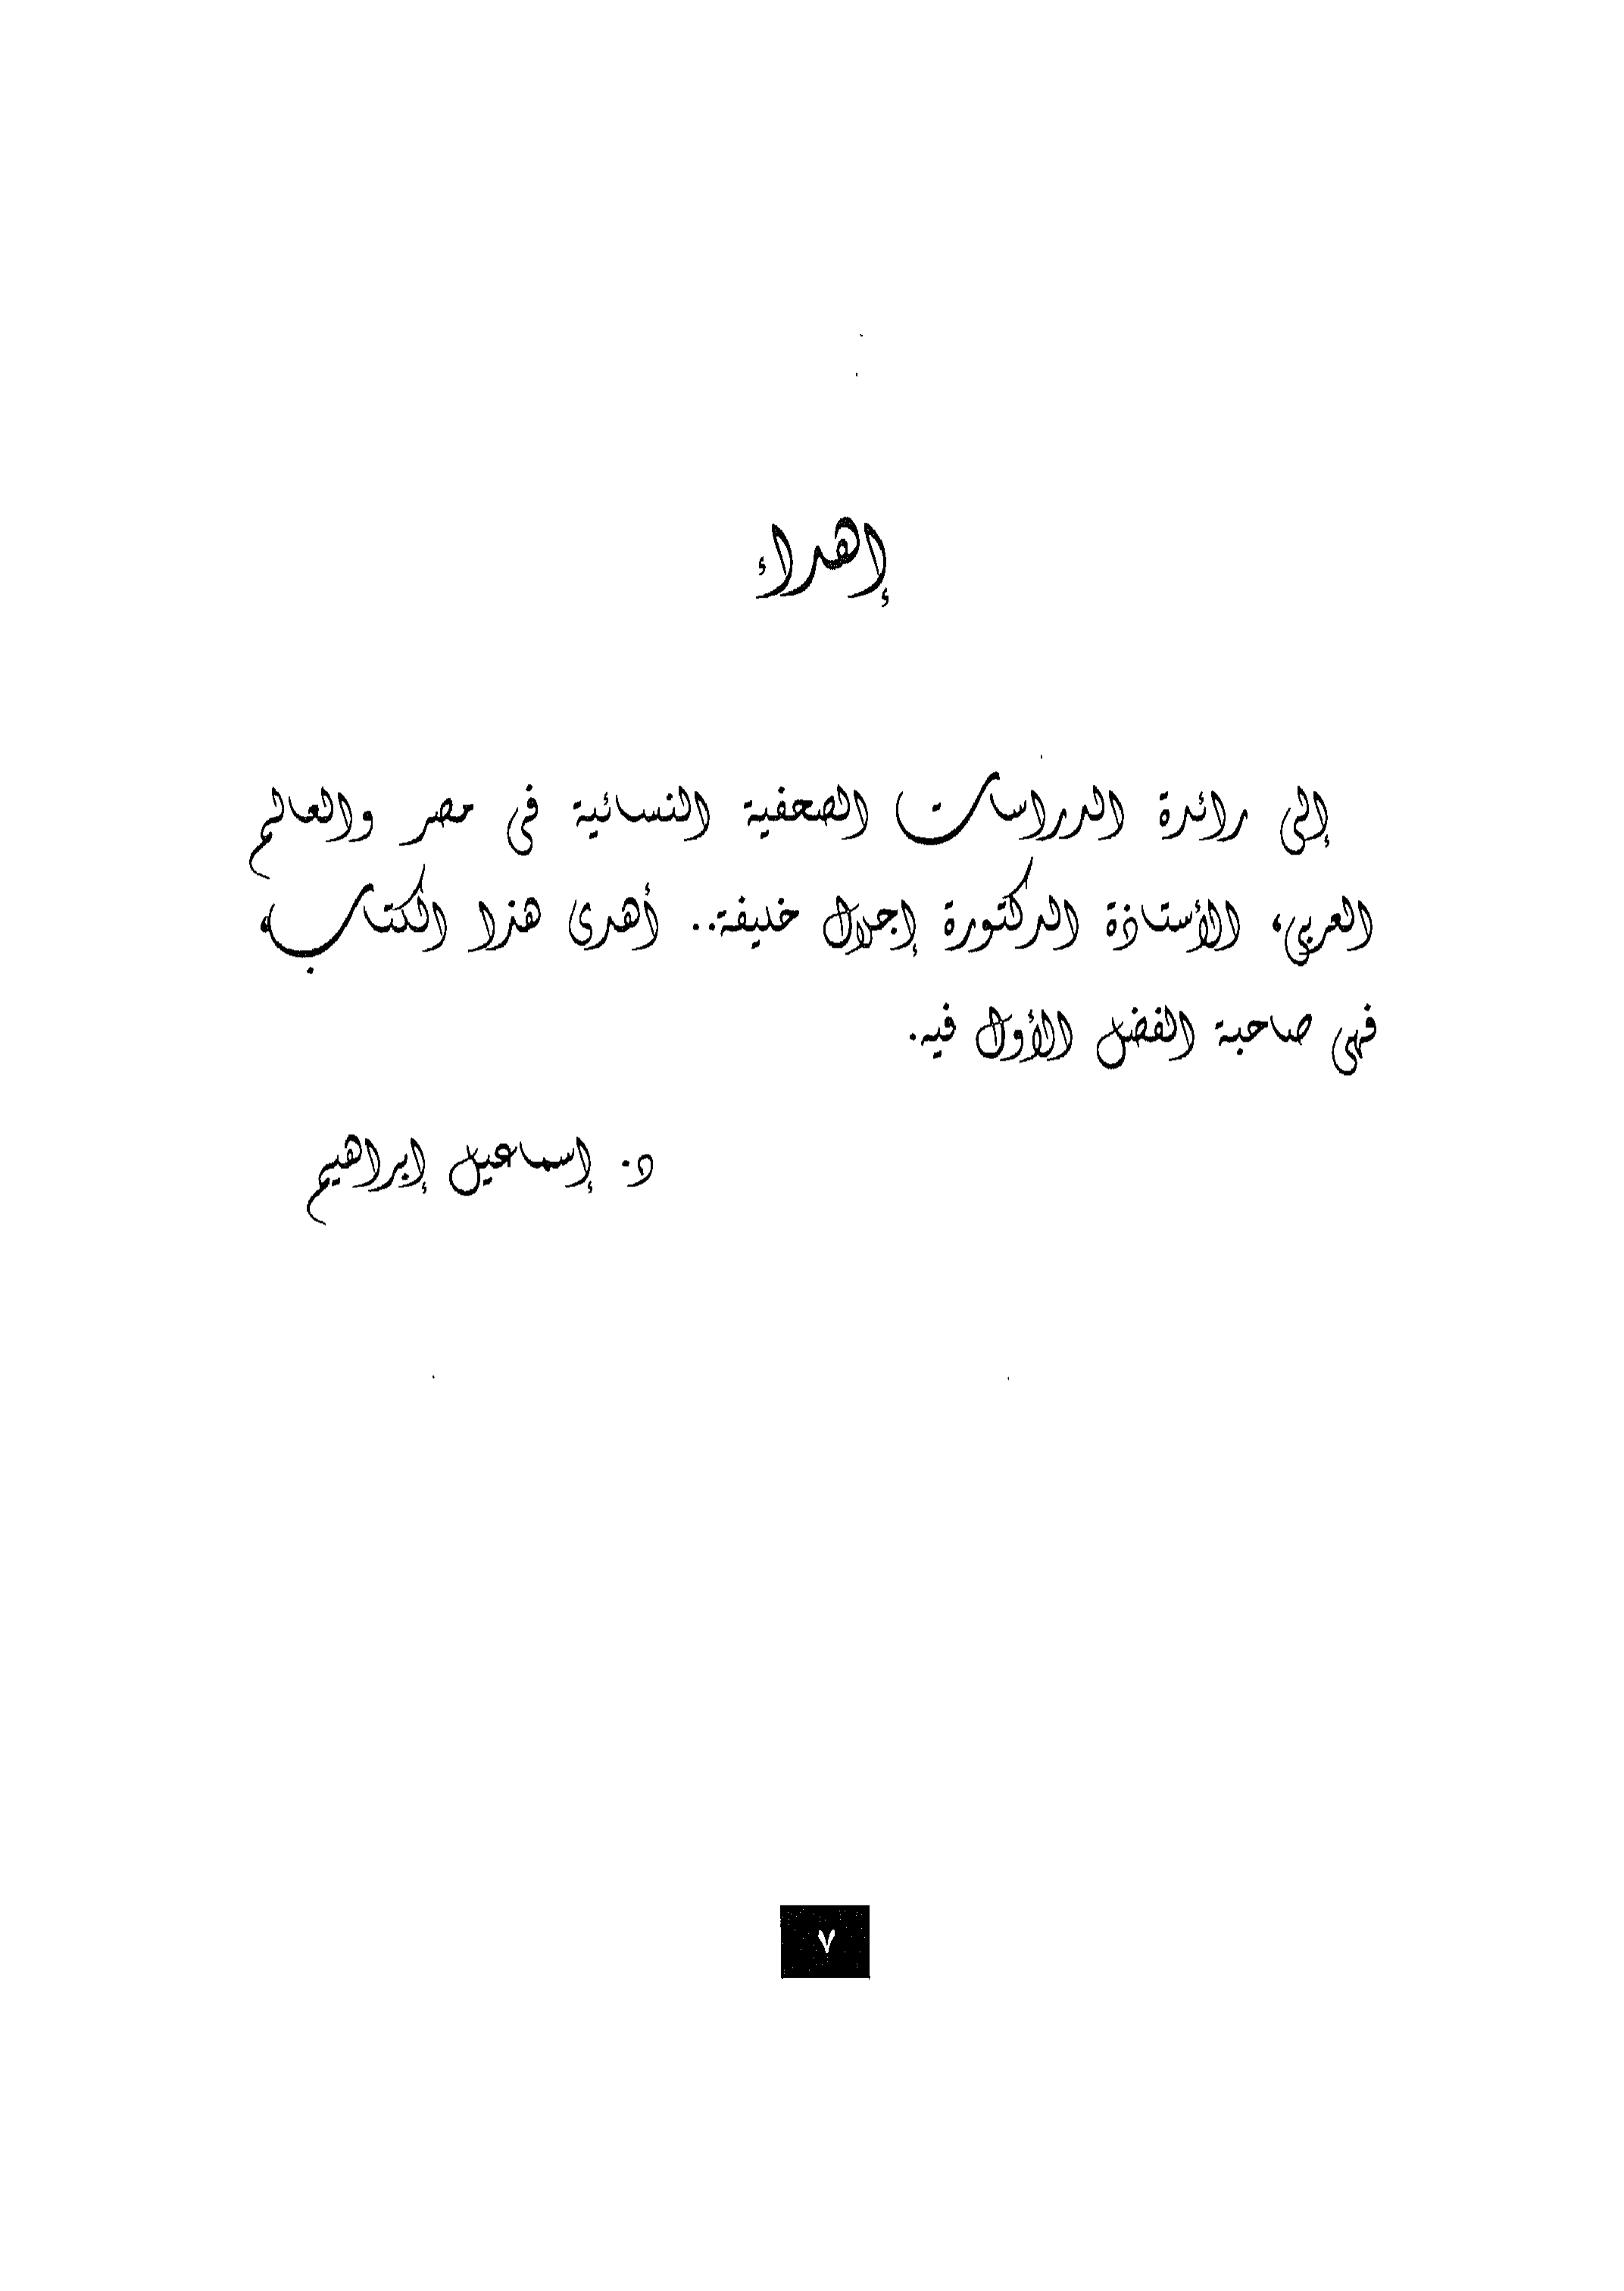 إهداء
إلى رائدة الدراسات الصحفية النسائية فى مصر والعالم
العربى، الأستاذة الدكتورة إجلال خليفة.. أهدى هذا الكتاب،
فهى صاحبة الفضل الأول فيه.
د. إسماعيل إبراهيم
٧